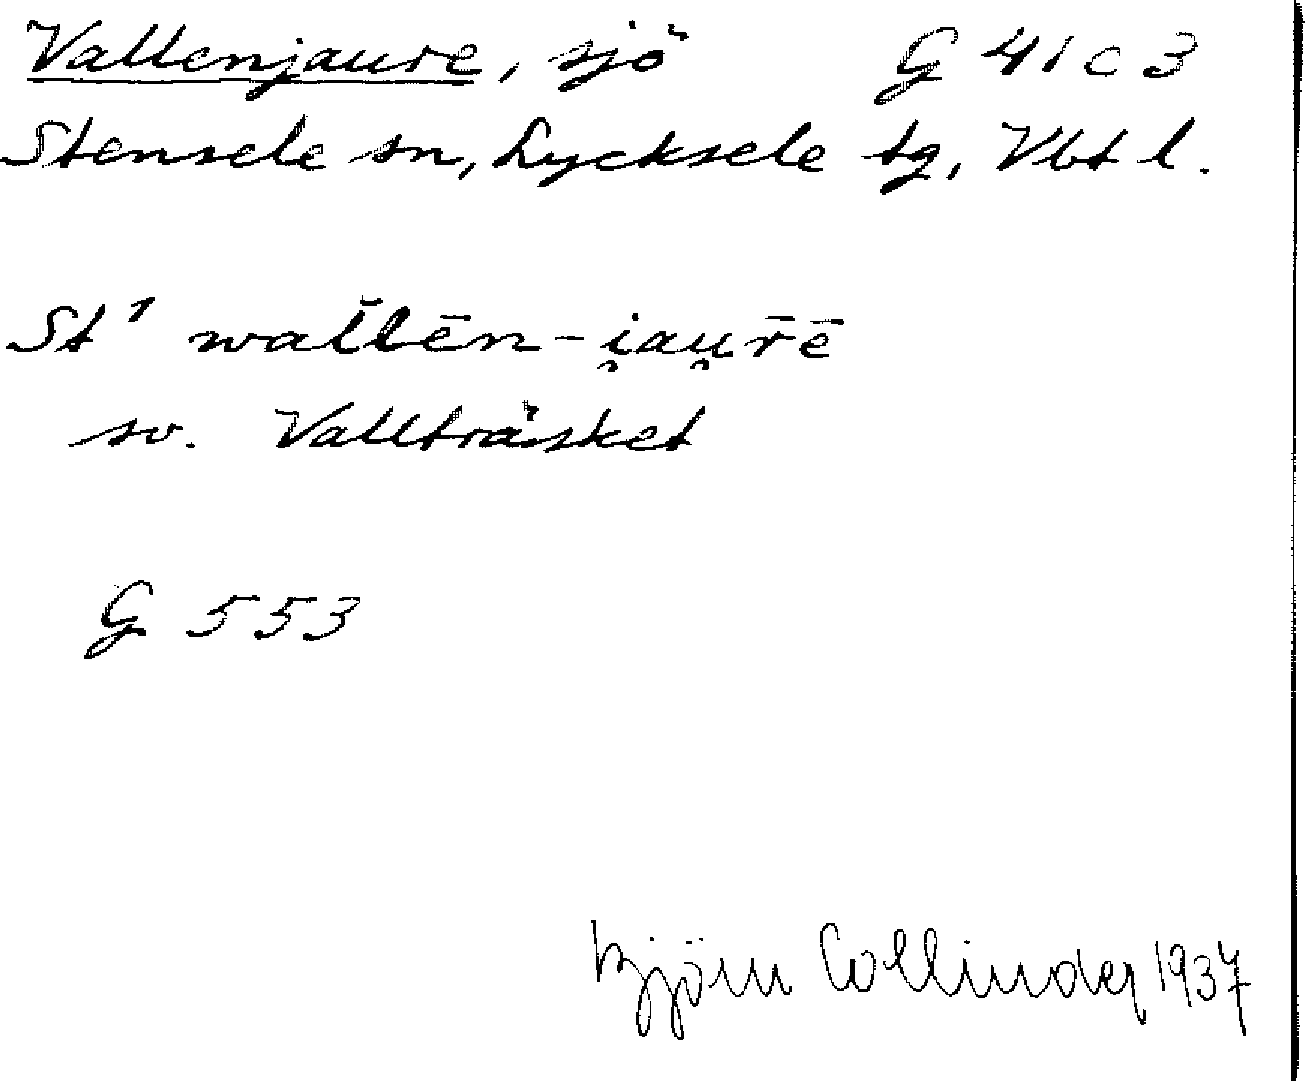 Vallenjaure, sjö G 41 c 3
Stensele sn, Lycksele tg, Vbt l.
St¹ wal̆lēn-i̯au̯r̄ē
sv. Vallträsket
G 553
Björn Collinder 1937